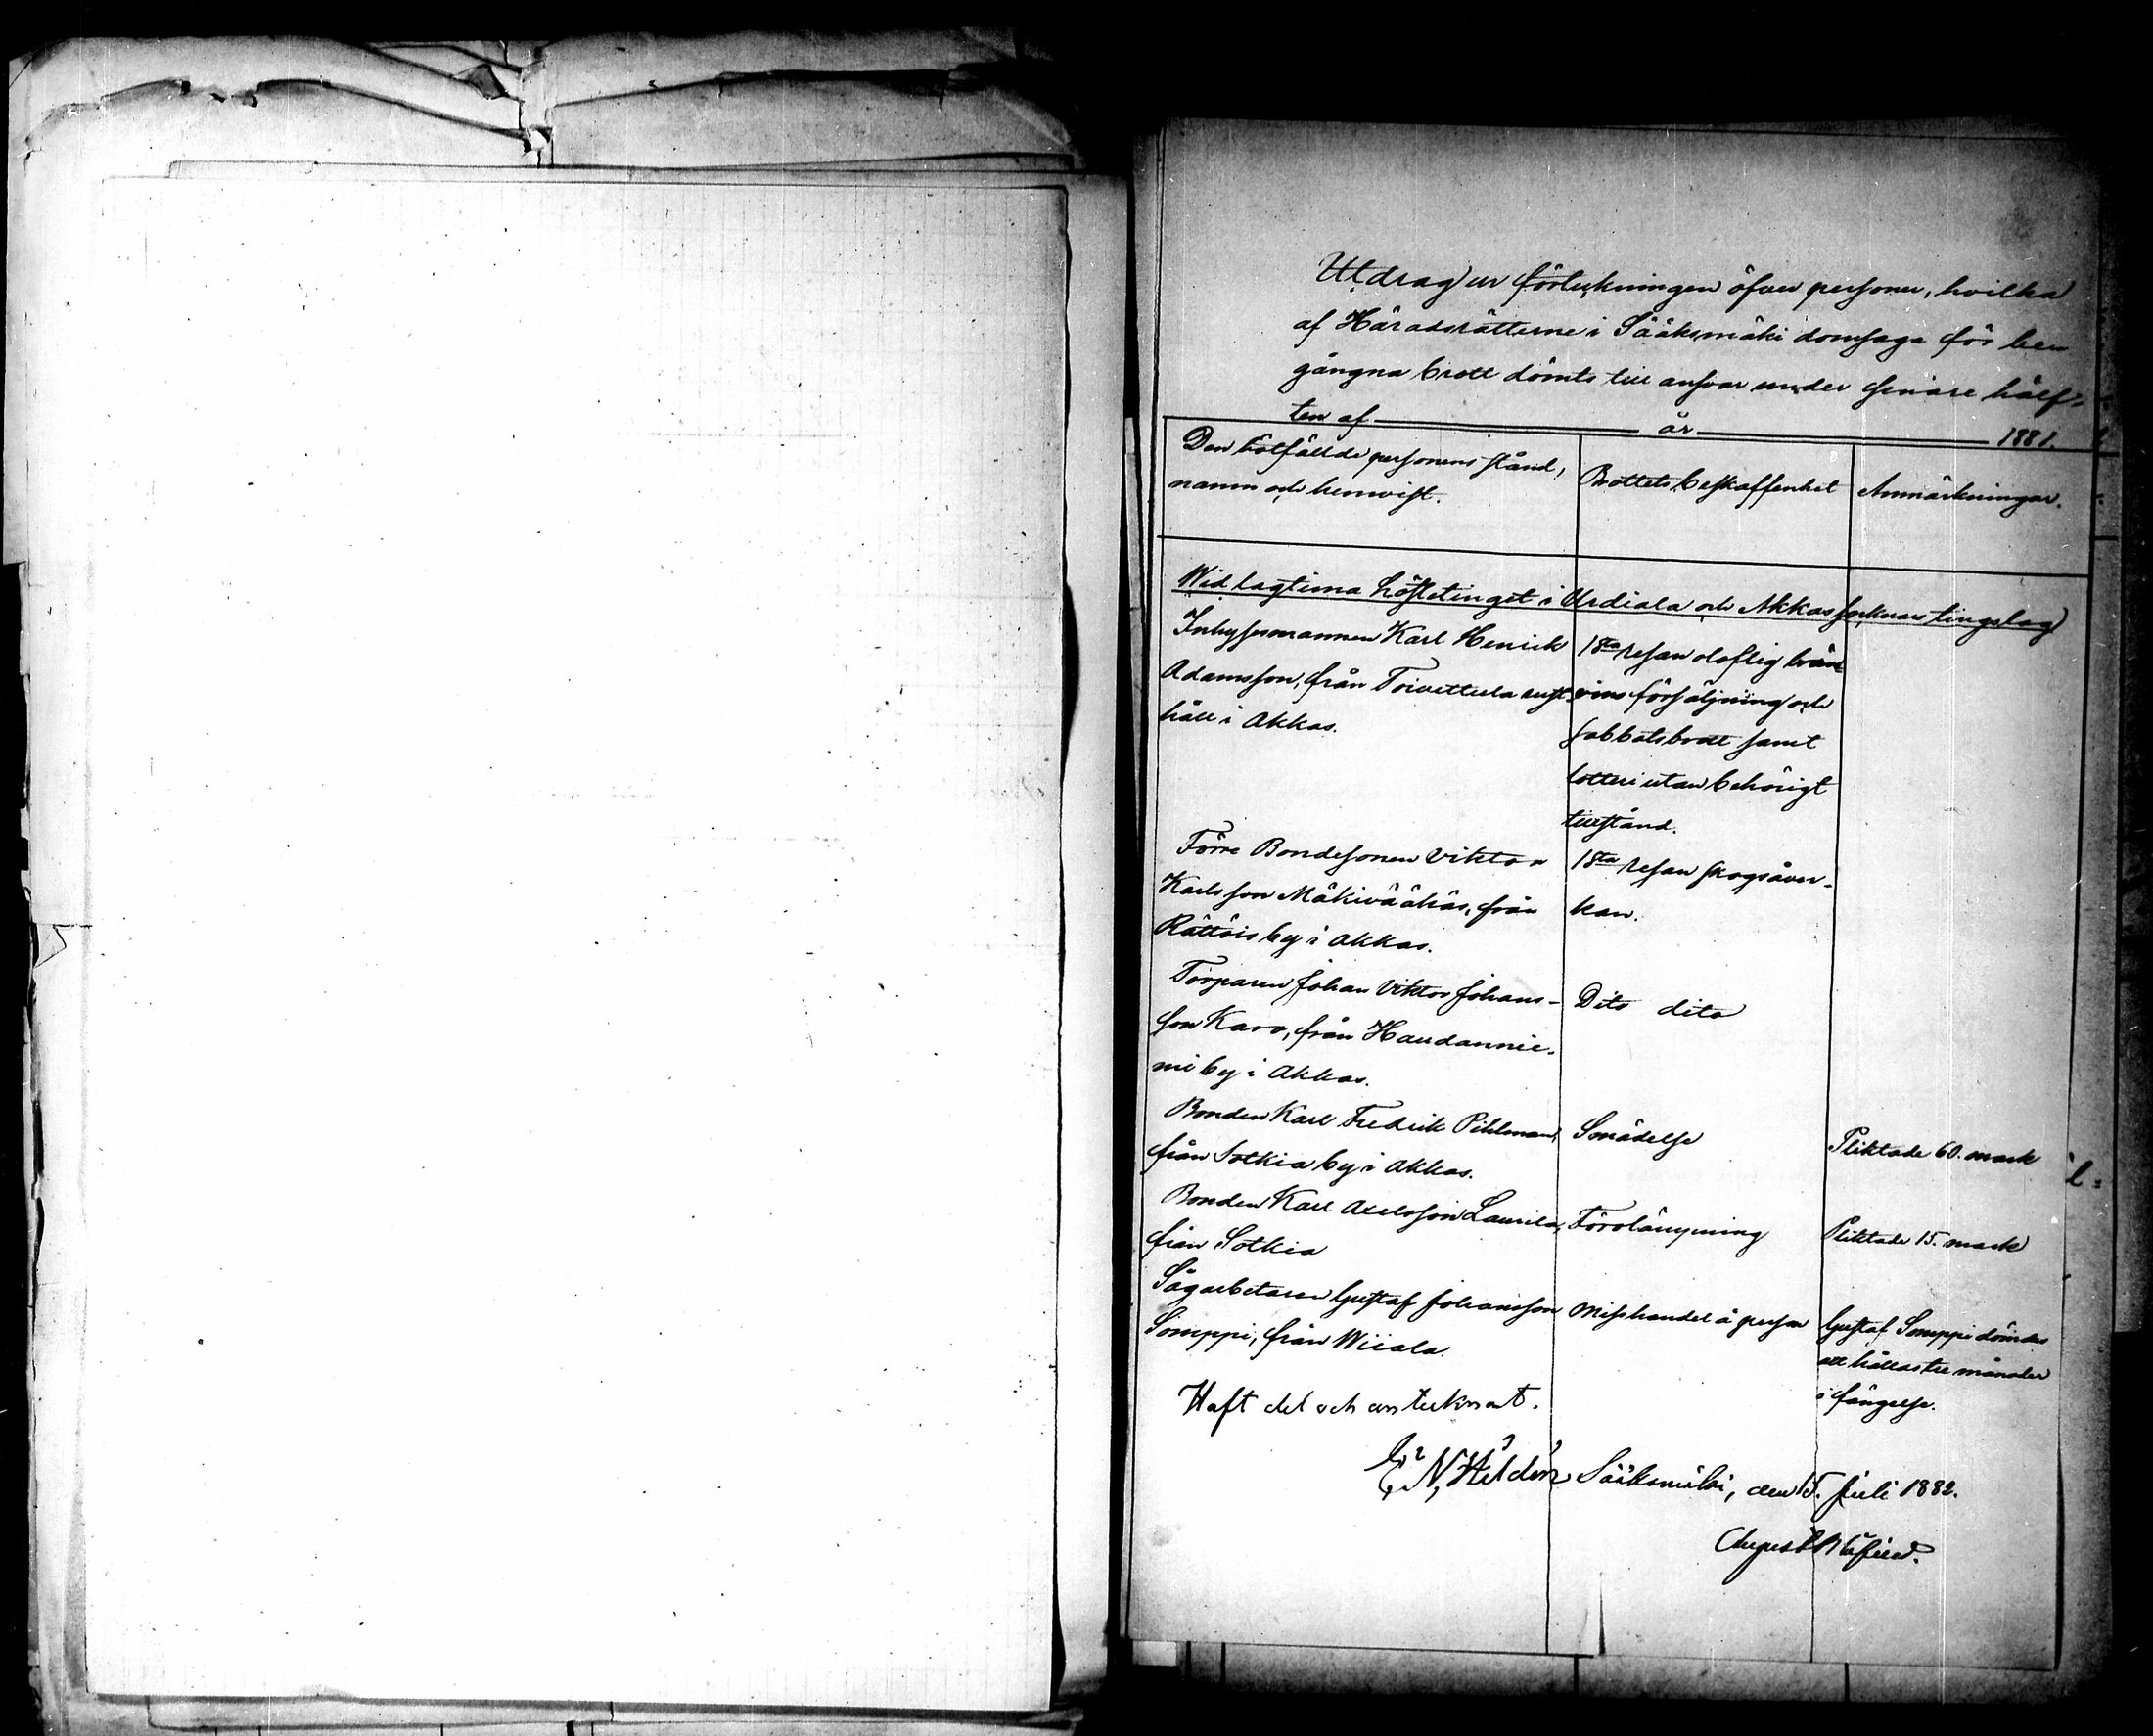 Utdrag ur förteckningen öfver personer, hvilka
af Häradsrätterne i Sääksmäki domsaga för be-
gångna brott dömts till ansvar under senare hälf-
ten af år 1881.
Den bötfällde personens stånd,
namn och hemvist.
Brottets beskaffenhet
Anmärkningar.
Wid lagtima hösttinget i Urdiala och Akkas socknars tingslag
Inhysesmannen Karl Henrik
Adamsson, från Toivettula rust-
håll i Akkas.
1sta resan oloflig bränn-
vins försäljning och
sabbatsbrott samt
lotteri utan behörigt
tillstånd.
Förre Bondesonen Viktor
Karlsson Mäkivääkäs, från
Rättöis by i Akkas.
1sta resan skogsåver-
kan.
Torparen Johan Viktor Johans-
son Karo, från Haudannie-
mi by i Akkas.
Dito dito
Bonden Karl Fredrik Pihlman,
från Sotkia by i Akkas.
Smädelse
Pliktade 60. mark
Bonden Karl Axelsson Laurila,
från Sotkia
Förolämpning
Pliktade 15. mark
Sågarbetaren Gustaf Johansson
Somppi, från Wiiala.
Misshandel å person
Gustaf Somppi dömdes
att hållas tre månader
i fängelse.
Haft del och antecknat.
N. Heldén
Sääksmäki, den 15. Juli 1882.
August